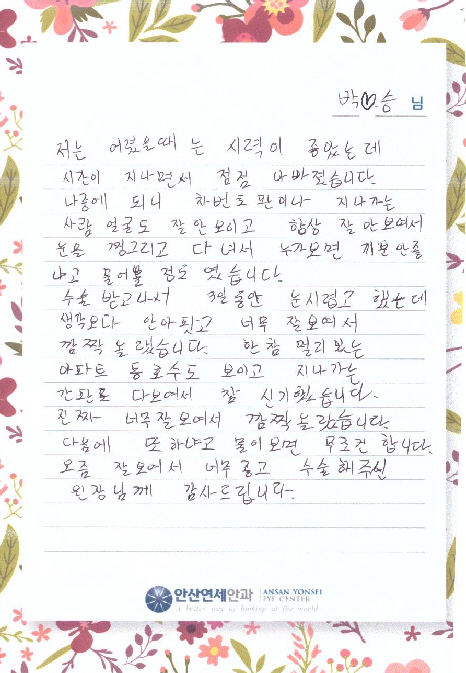 박♡승 님
저는 어렸을때 는 시력이 좋았는데
시간이 지나면서 점점 나빠졌습니다.
나중에 되니 차번호판이나 지나가는
사람 얼굴도 잘 안보이고 항상 잘 안보여서
눈을 찡그리고 다녀서 누가보면 기분안좋
냐고 물어볼 정도 였습니다.
수술 받고나서 3일동안 눈시렵고 했는데
생각보다 안아팠고 너무 잘보여서
깜짝 놀랬습니다. 한참 멀리 있는
아파트 동호수도 보이고 지나가는
간판도 다보여서 참 신기했습니다.
진짜 너무잘보여서 깜짝놀랐습니다.
다음에 또 하냐고 물어보면 무조건 합니다.
요즘 잘보여서 너무좋고 수술해주신
원장님께 감사드립니다.
안산연세안과 ANSAN YONSEI
EYE CENTER
A better way of looking at the world